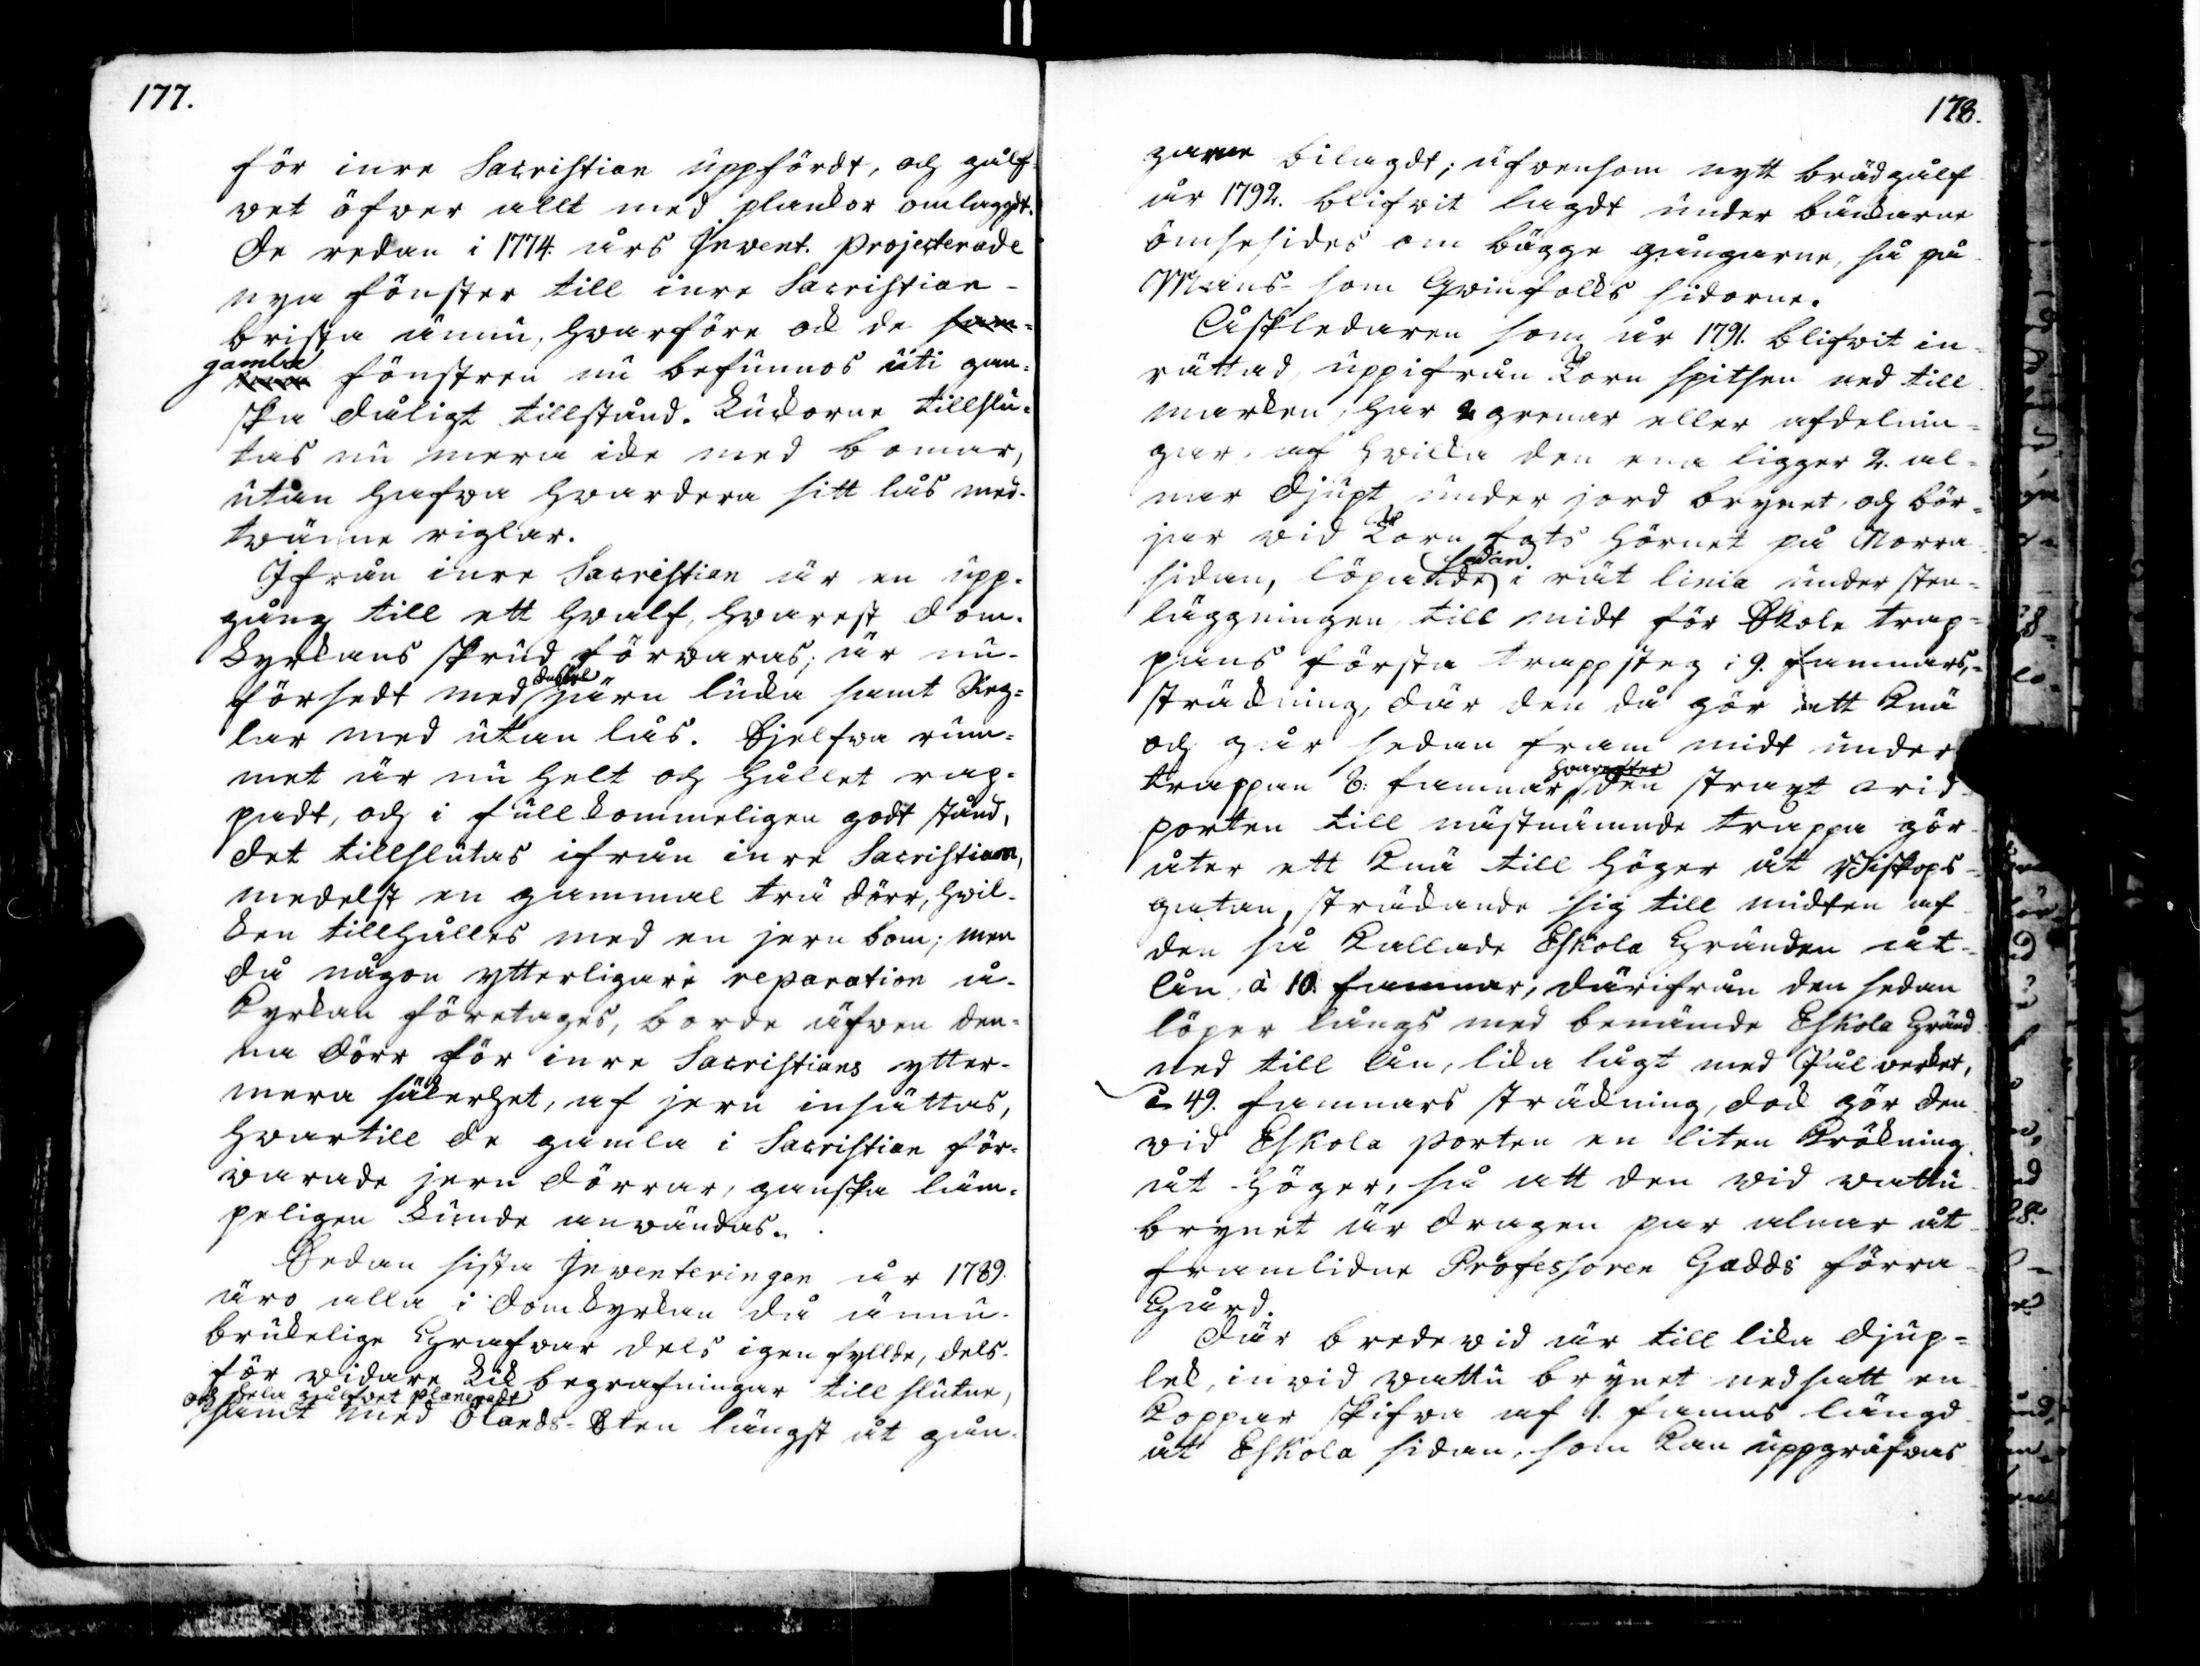 177.
för inre Sacristian uppfördt, och gålf-
vet öfwer allt med plankor omlaggdt.
De redan i 1774. års Invent. projecterade
nya fönster till inre Sacristian
brista ännu, hvarföre ock de sam-
gamla
fönstren nu befunnos uti gan-
ska dåligt tillstånd. Luckorne tillslu-
tas nu mera icke med bomar,
utan hafwa hvardera sitt lås med
twänne riglar.
Ifrån inre Sacristian är en upp-
gång till ett hvalf, hvarest dom-
kyrkans skrud förwaras; är nu
dubbel
försedt med järn lucka samt Reg-
lar med utan lås. Sjelfva rum-
met är nu helt och hållet rap-
padt, och i fullkommeligen godt stånd,
det tillslutas ifrån inre Sacristian,
medelst en gammal trä dörr, hvil-
ken tillhålles med en jern bom; men
då någon ytterligare reparation å
Kyrkan företages, borde äfwen den-
na dörr för inre Sacristians ytter-
mera säkerhet, af jern insättas,
hvartill de gamla i Sacristian för-
warade jern dörrar, ganska läm-
peligen kunde anwändas.
Sedan sista Inventeringen år 1789.
äro alla i Domkyrkan då ännu
brukelige Grafvar dels igenfyllde, dels
för vidare Lik begrafningar till slutne,
och hela gålfvet planeradt
samt med Ölands-Sten längst åt gån-
178.
garne bilagdt; äfvensom nytt brädgålf
år 1792. blifvit lagdt under bänkarne
ömsesides om bägge gångarne, så på
Mans- som Qvinfolks sidorne.
Åskledaren som år 1791. blifvit in-
rättad, uppifrån Torn spitsen ned till
marken, har 2 grenar eller afdelnin-
gar, af hvilka den ena ligger 2. al-
nar djupt under jord brynet, och bör-
jar vid Torn fots hörnet på Norra
sedan
sidan, löpande i rät linia under sten-
läggningen till midt för Skole trap-
pans första trappsteg i 9. famnars
sträckning, där den då gör ett Knä
och går sedan fram midt under
hvarefter
trappan 6: famnar, den straxt vid
porten till nästnämnde trappa gör
åter ett Knä till höger åt Biskops-
gatan, sträckande sig till midten af
den så Kallade Skola Gränden åt
Ån, à 10. famnar, därifrån den sedan
löper långs med benämde Skola Gränd
ned till Ån, lika lågt med Pålverket,
à 49. famnars sträckning, dock gör den
vid Skola porten en liten Krökning
åt höger, så att den vid vattu
brynet är dragen par alnar åt
framlidne Professoren Gadds förra
Gård.
Där bredevid är till lika djup-
lek, invid vattu brynet nedsatt en
Koppar skifva af 1. famns längd
åt Skola sidan, som kan uppgräfvas